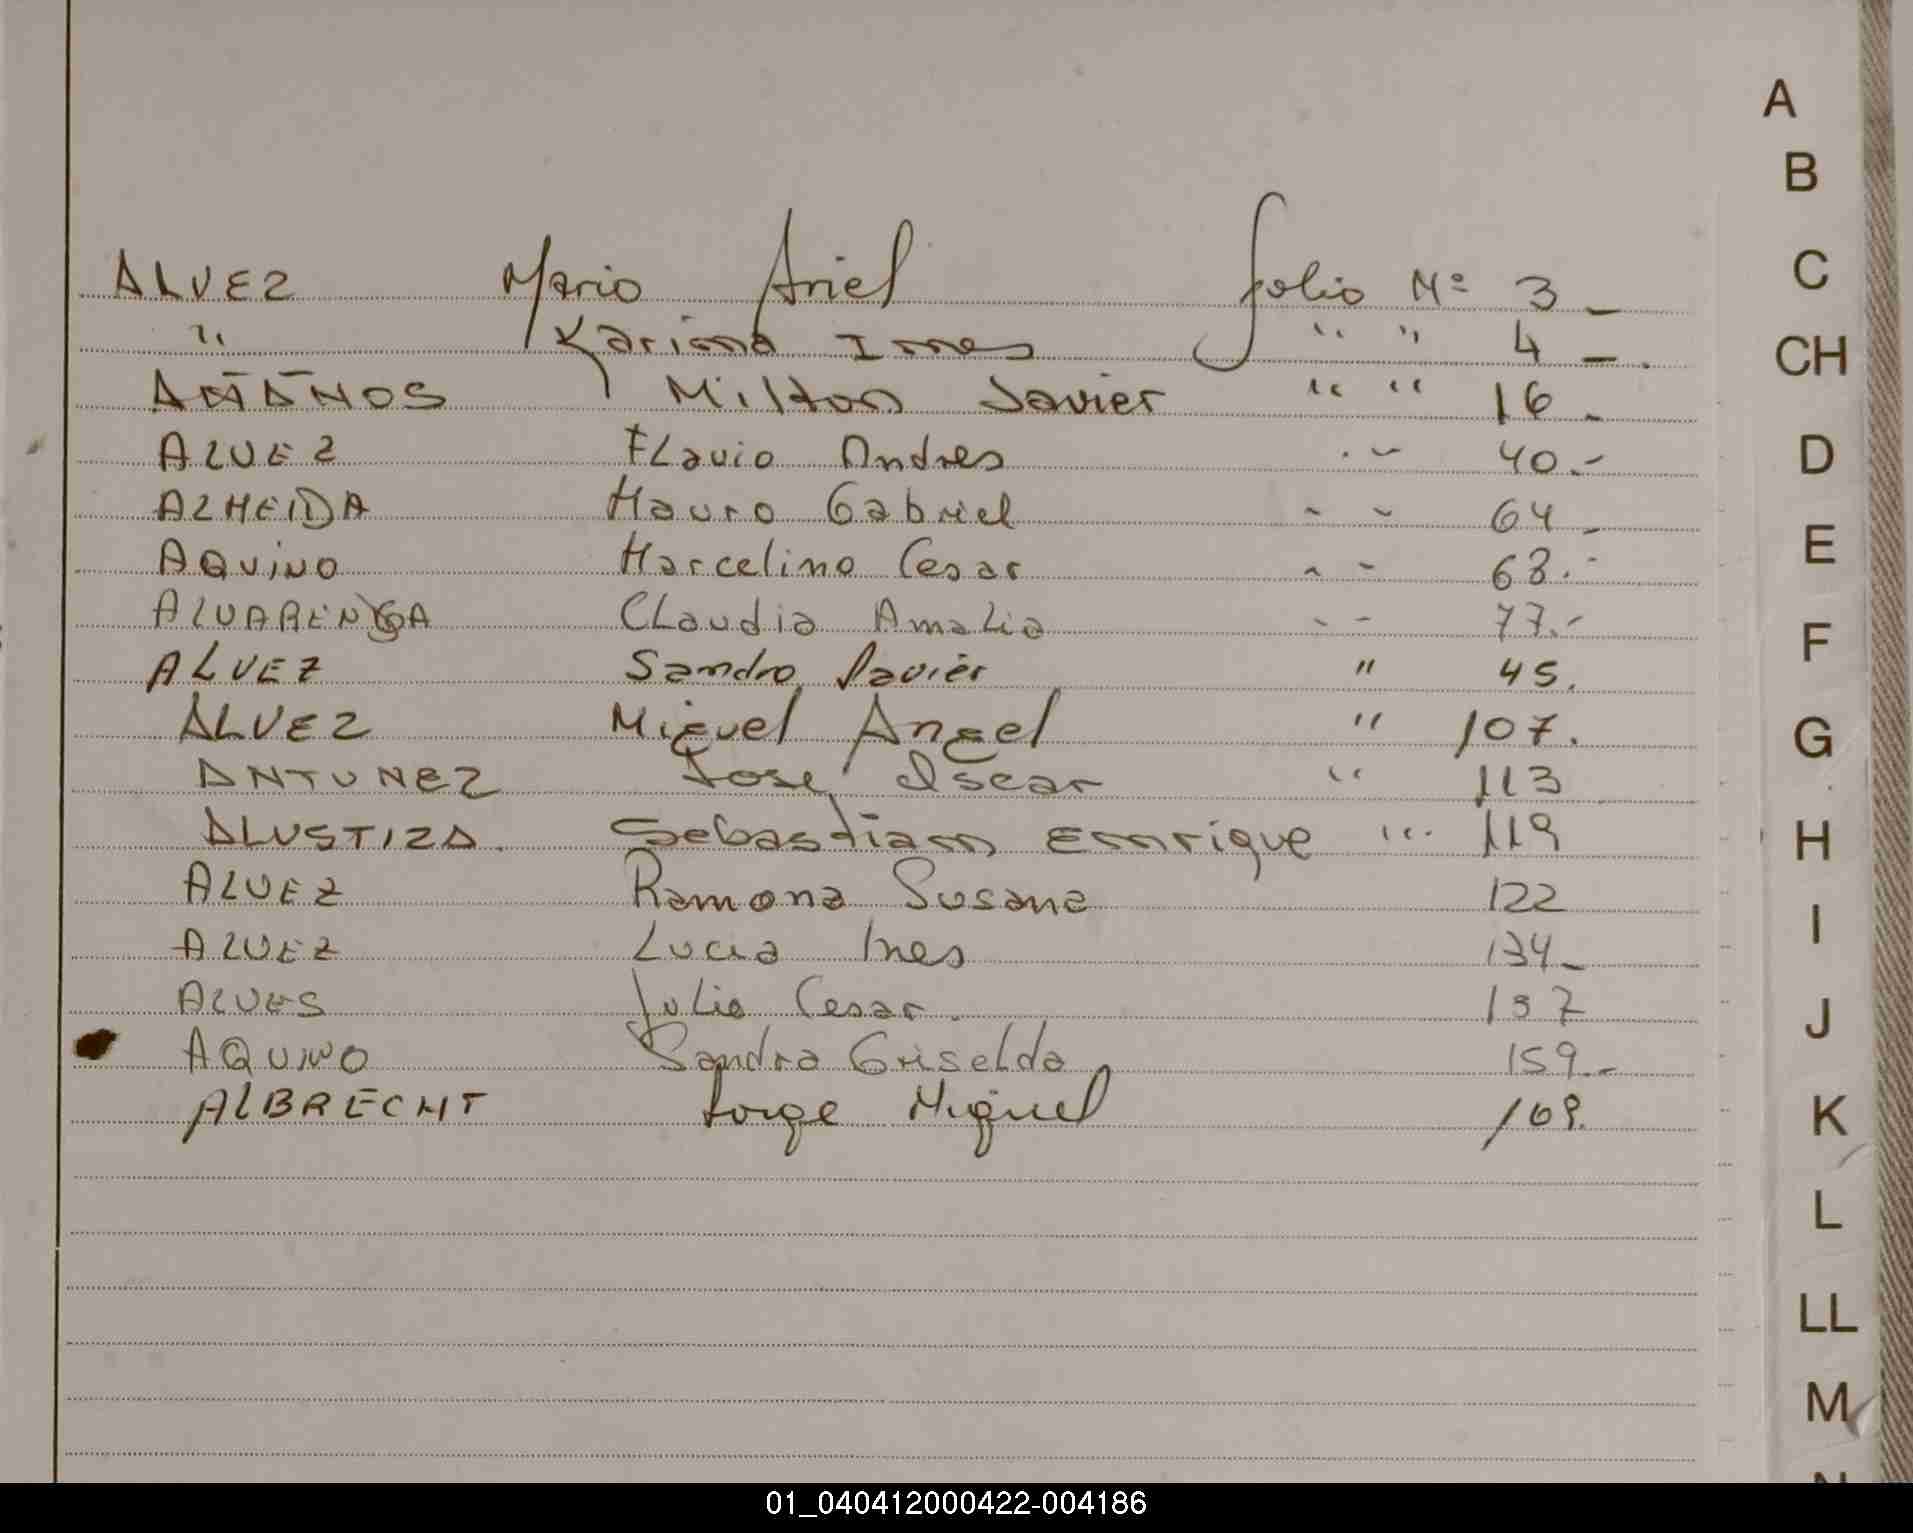 ALVEZ Mario Ariel folio Nº 3 -
" Karina Ines " " 4 - .
AÑAÑOS Milton Javier " " 16 -
ALVEZ Flavio Andres " " 40.-
ALMEIDA Mauro Gabriel " " 64 -
AQUiNO Marcelino Cesar " " 68.-
ALVARENGA Claudia Amalia " " 77.-
ALVEZ Sandro Javier " 45.
ALVEZ Miguel Angel " 107.
ANTUNEZ Jose Oscar " 113
ALUSTIZA. Sebastian Enrique " 119
ALVEZ Ramona Susana 122
ALVEZ Lucia Ines 134 -
ALVES Julio Cesar. 137
AQUINO Sandra Griselda 159.-
ALBRECHT Jorge Miguel 169.
A
B
C
CH
D
E
F
G
H
I
J
K
L
LL
M
N
01_040412000422-004186